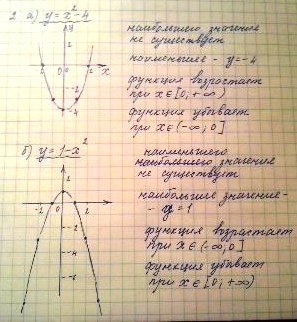 2. а) y=x²-4
наибольшего значения
не существует
наименьшее - y=-4
функция возрастает
при x∈[0,+∞)
функция убывает
при x∈(-∞;0]
y
-2
2
x
-4
б) y=1-x²
наименьшего
наибольшего значения
не существует
наибольшие значение-
- y=1
функция возрастает
при x∈(-∞,0]
функция убывает
при x∈[0,+∞)
-2
0
2
-2
-4
-6